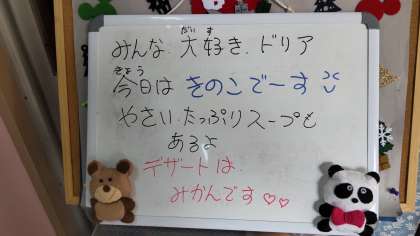 だい す
みんな 大好き ドリア
きょう
今日は きのこでーす
やさい たっぷりスープも
あるよ
デザートは
みかんです♡♡